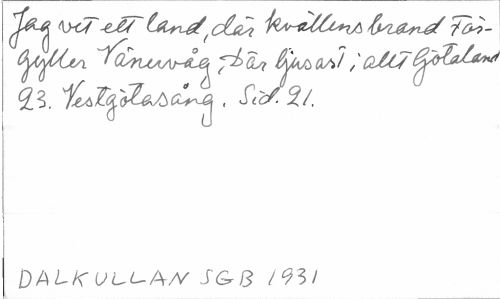 Jag vet ett land, där kvällens brand För-
gyller Vänervåg, Där ljusast i allt Götaland
23. Vestgötasång. Sid. 21.
DALKULLAN SGB 1931